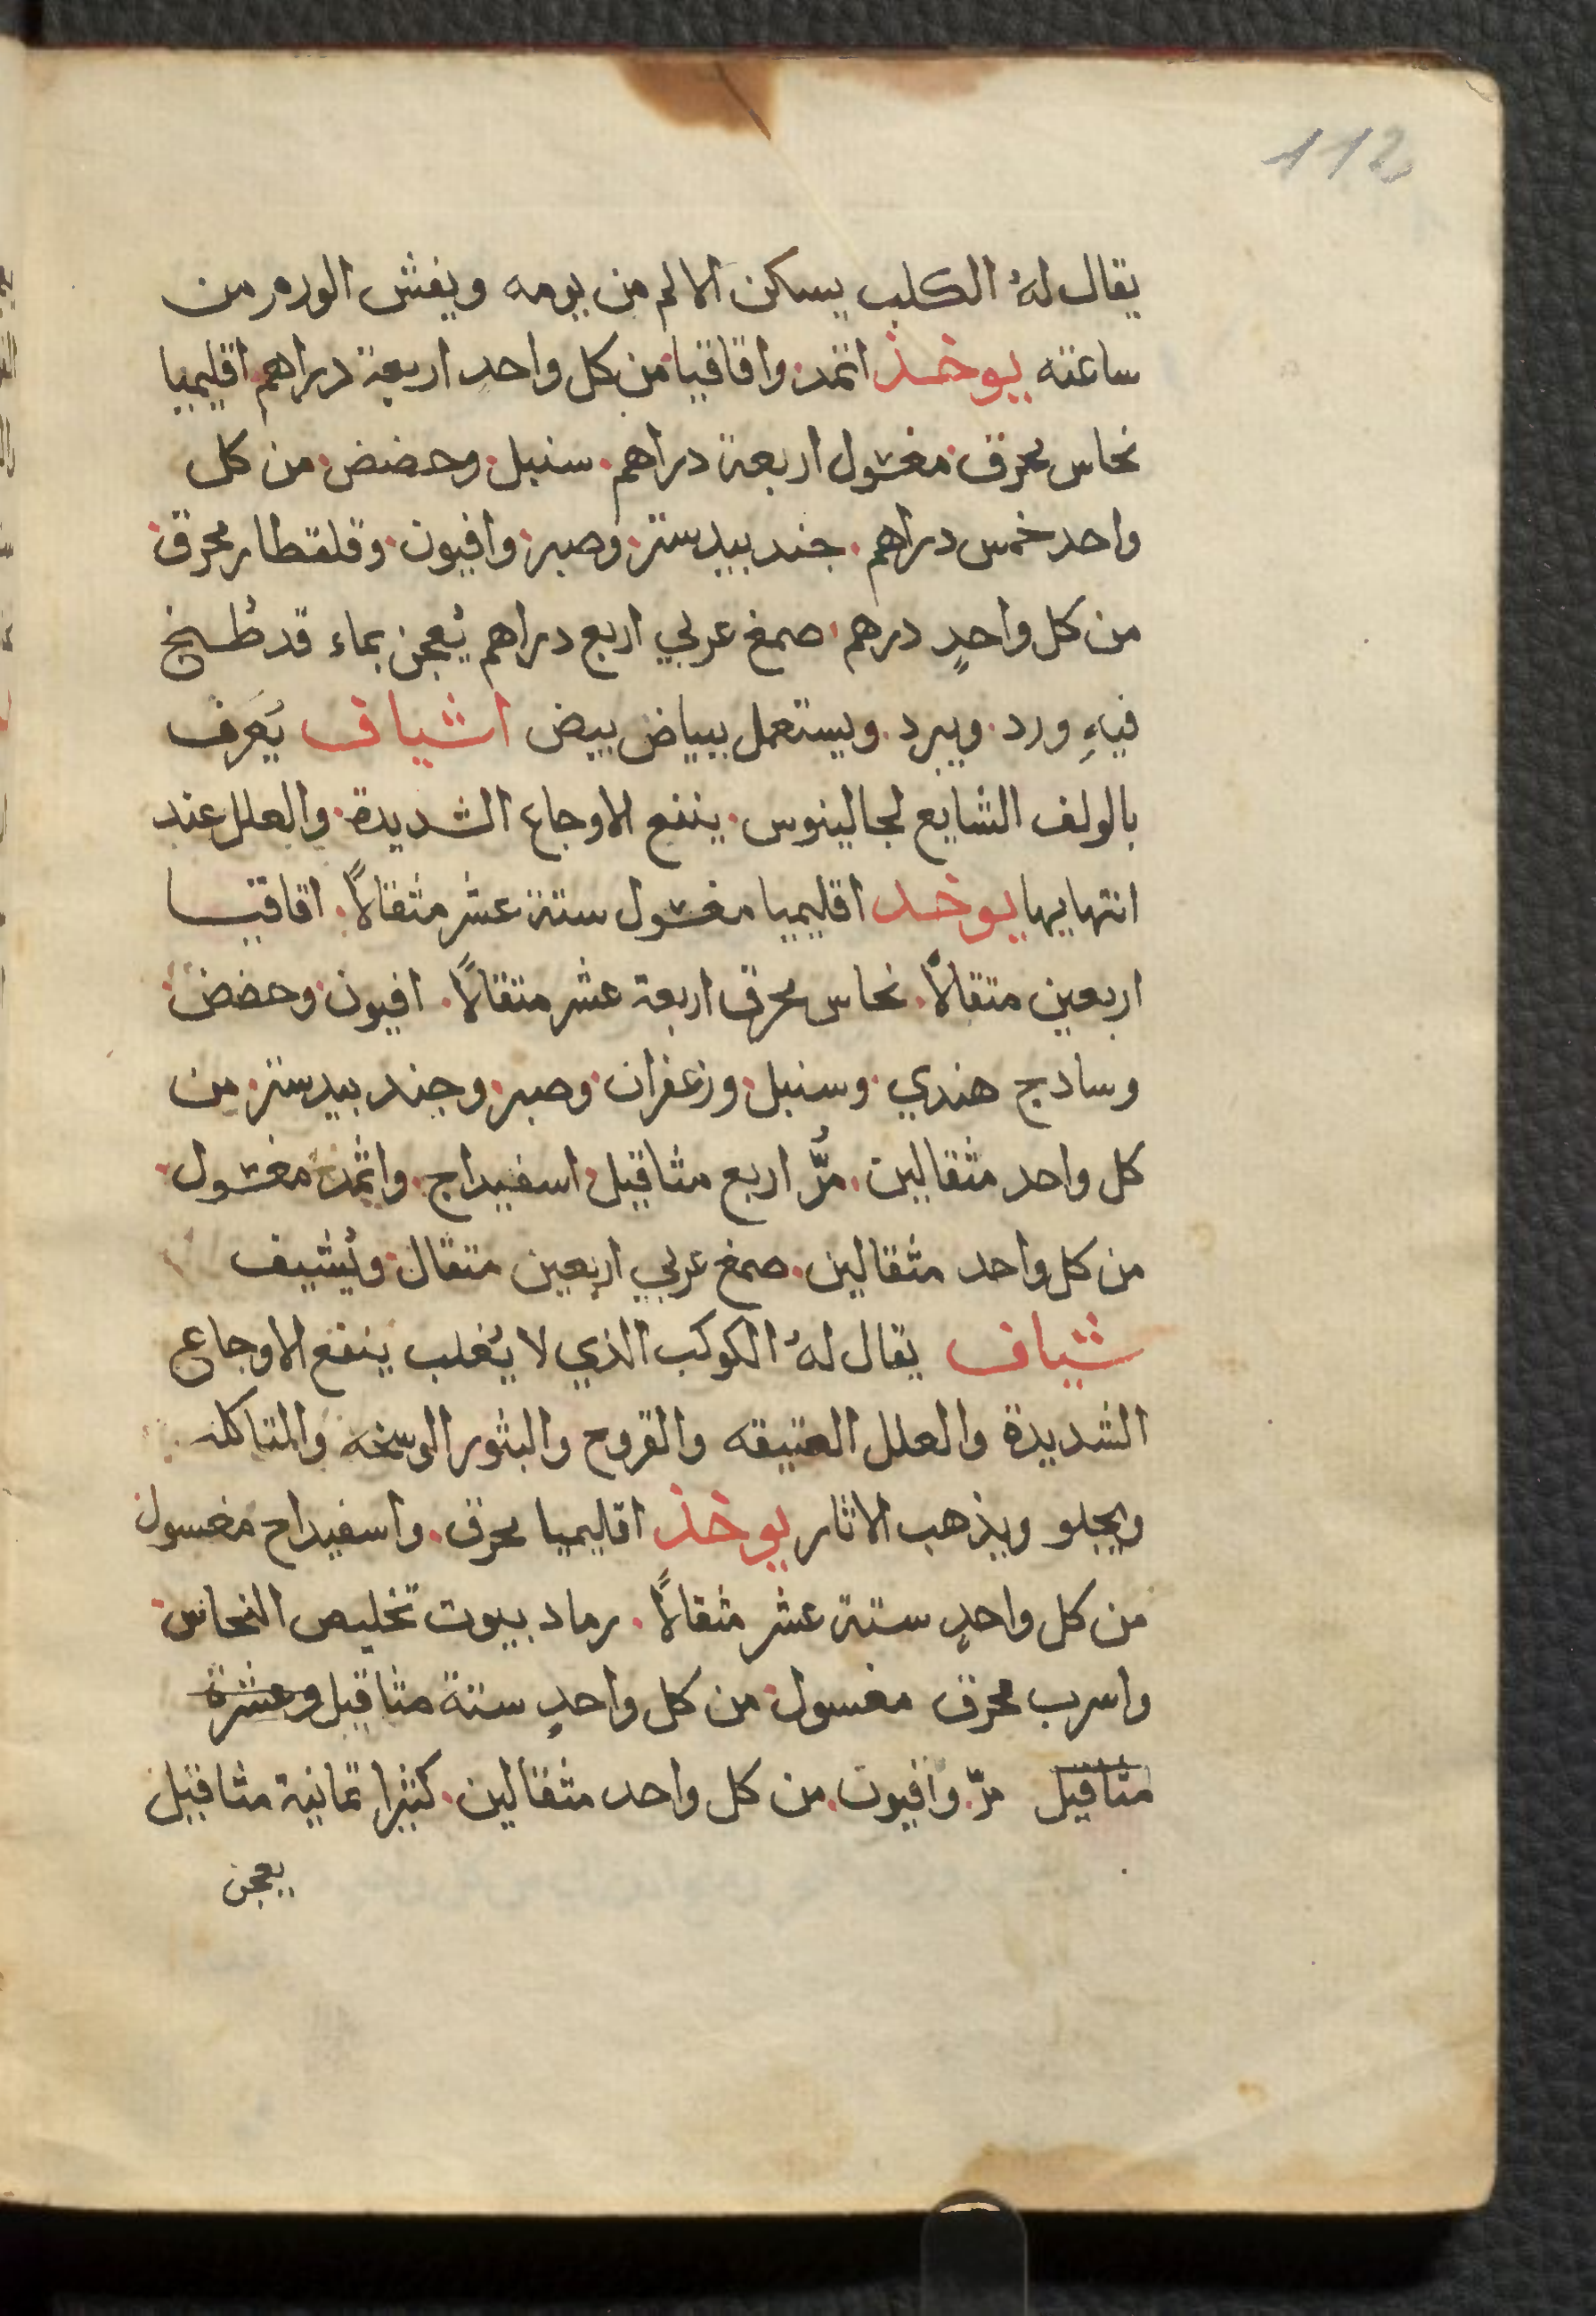 112
يقال لهُ الكلب يسكن الالم من يومه ويفش الورم من
ساعته يوخذ اثمد. واقاقيا. من كل واحد اربعة دراهم. اقليميا
نحاس محرق. مغسول اربعة دراهم. سنبل. وحضض. من كل
واحد خمس دراهم. جند بيدستر. وصبر. وافيون. وقلقطار محرق.
من كل واحدٍ درهم. صمغ عربي اربع دراهم يُعجن بماء قد طُبخ
فيهِ ورد. ويبرد. ويستعمل ببياض بيض اشياف يُعَرف
بالولف الشايع لجالينوس. ينفع الاوجاع الشديدة. والعلل عند
انتهايها يوخد اقليميا مغسول ستة عشر مثقالاً. اقاقيا
اربعين متقالاً. نحاس محرق اربعة عشر متقالاً. افيون. وحضض.
وسادج هندي. وسنبل. وزعفران. وصبر. وجند بيدستر. من
كل واحد مثقالين. مُرّ اربع مثاقيل. اسفيداج. واثمد. مغسول.
من كل واحد مثقالين. صمغ عربي اربعين متقال. ويُشيف
شياف يقال لهُ الكوكب الذي لا يُغلب ينفع الاوجاع
الشديدة والعلل العتيقه والقروح والبثور الوسخه والمتاكله.
ويجلو ويذهب الاثار يوخذ اقليميا محرق. واسفيداج مغسول
من كل واحدٍ ستة عشر مثقالاً. رماد بيوت تخليص النحاس.
واسرب محرق مغسول. من كل واحدٍ ستة مثاقيل وعشرة
مثاقيل مرّ. وافيون. من كل واحد مثقالين. كثيرا ثمانية مثاقيل
يعجن